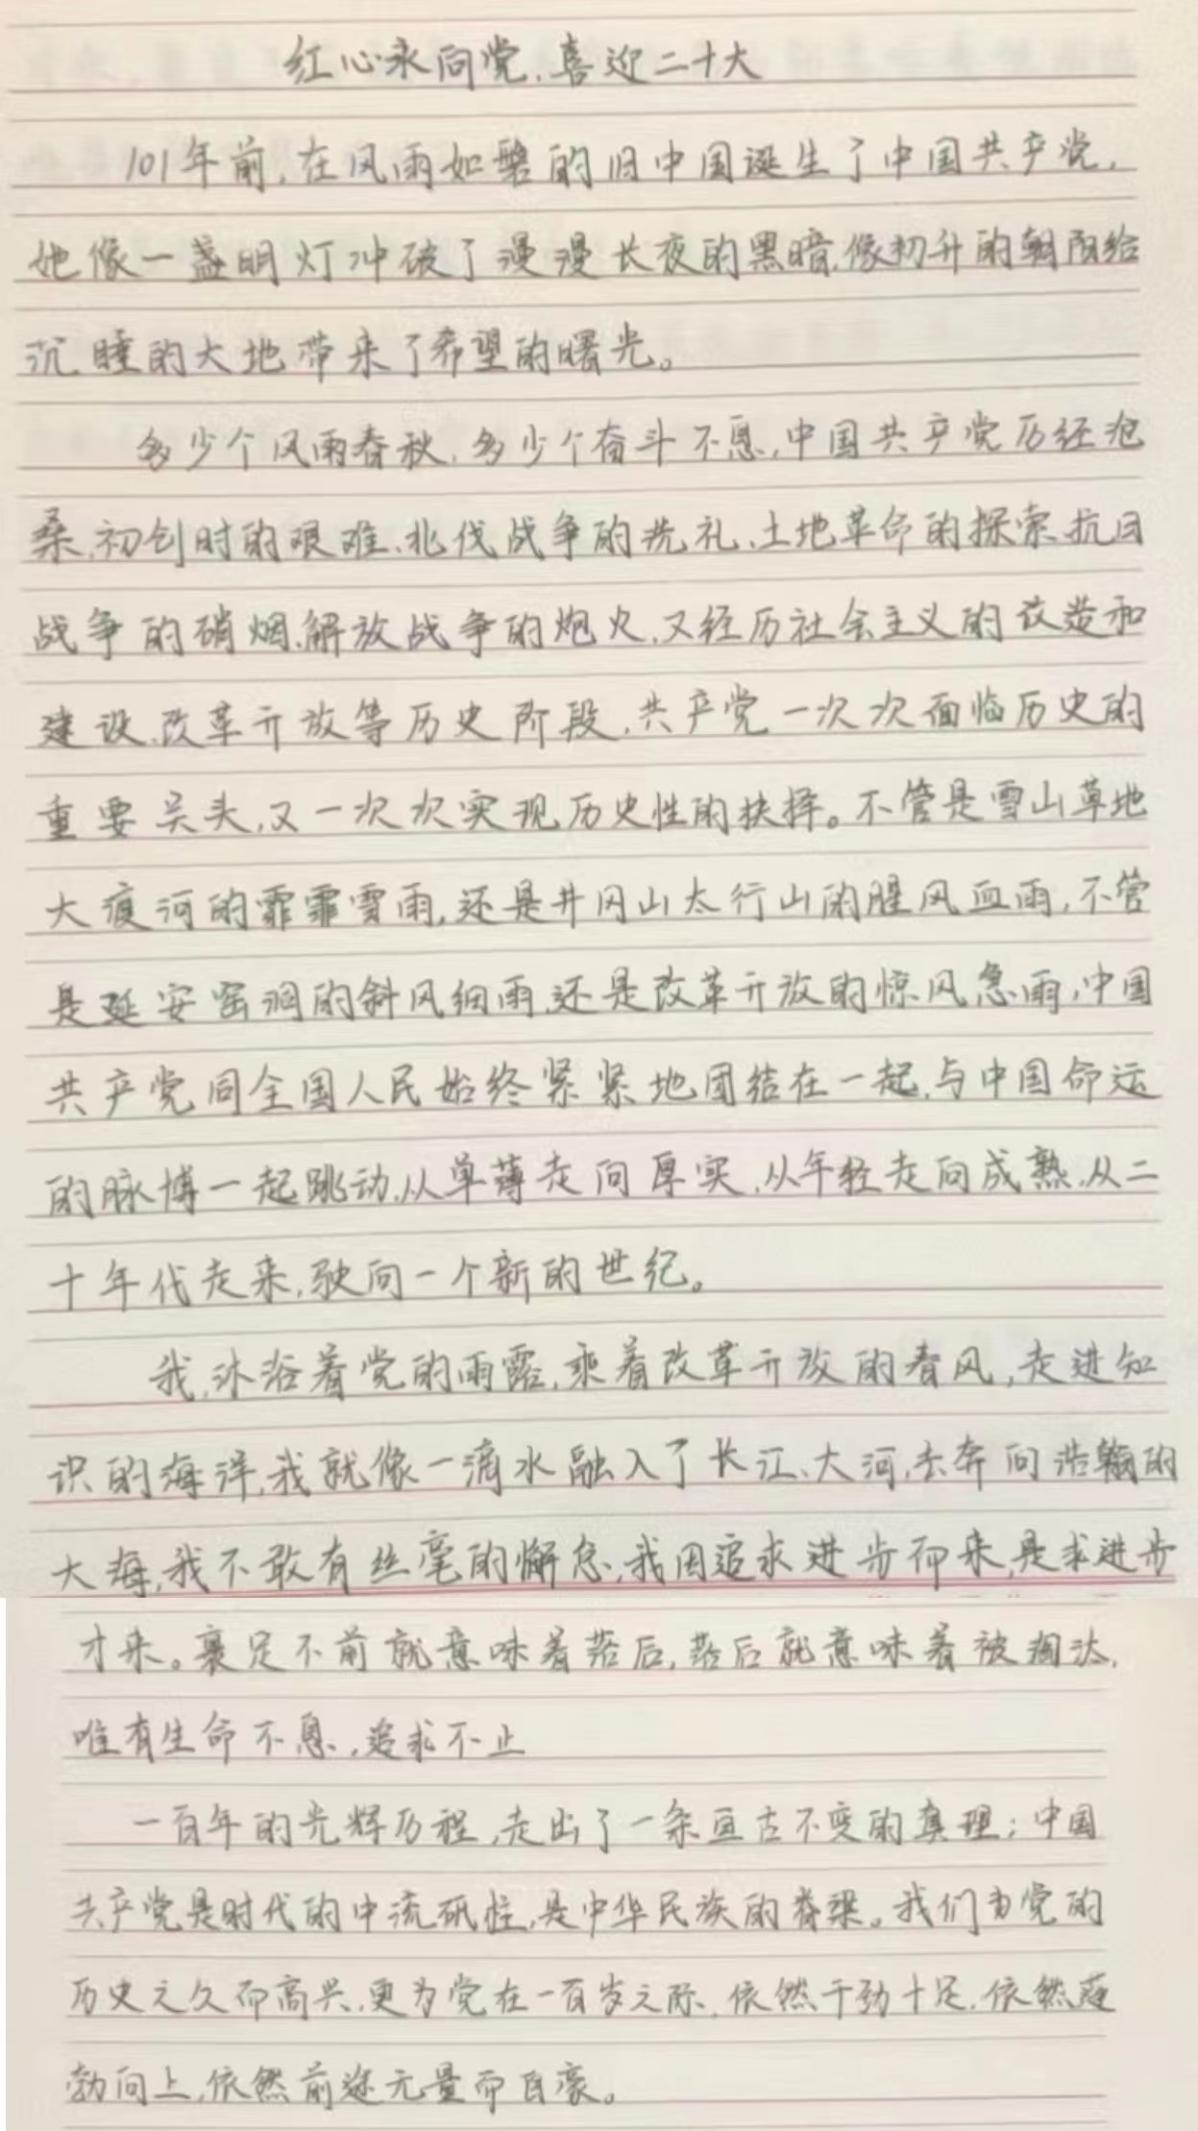 红心永向党,喜迎二十大
101年前,在风雨如磐的旧中国诞生了中国共产党,
她像一盏明灯冲破了漫漫长夜的黑暗,像初升的朝阳给
沉睡的大地带来了希望的曙光。
多少个风雨春秋,多少个奋斗不息,中国共产党历经沧
桑,初创时的艰难、北伐战争的洗礼、土地革命的探索、抗日
战争的硝烟、解放战争的炮火,又经历社会主义的改造和
建设、改革开放等历史阶段,共产党一次次面临历史的
重要关头,又一次次实现历史性的抉择。不管是雪山草地
大渡河的霏霏雪雨,还是井冈山太行山的腥风血雨,不管
是延安窑洞的斜风细雨,还是改革开放的惊风急雨,中国
共产党同全国人民始终紧紧地团结在一起,与中国命运
的脉博一起跳动,从单薄走向厚实,从年轻走向成熟,从二
十年代走来,驶向一个新的世纪。
我,沐浴着党的雨露,乘着改革开放的春风,走进知
识的海洋,我就像一滴水融入了长江、大河,去奔向浩瀚的
大海,我不敢有丝毫的懈怠,我因追求进步而来,是求进步
才来。裹足不前就意味着落后,落后就意味着被淘汰,
唯有生命不息,追求不止
一百年的光辉历程,走出了一条亘古不变的真理:中国
共产党是时代的中流砥柱,是中华民族的脊梁。我们为党的
历史之久而高兴,更为党在一百岁之际,依然干劲十足,依然蓬
勃向上,依然前途无量而自豪。